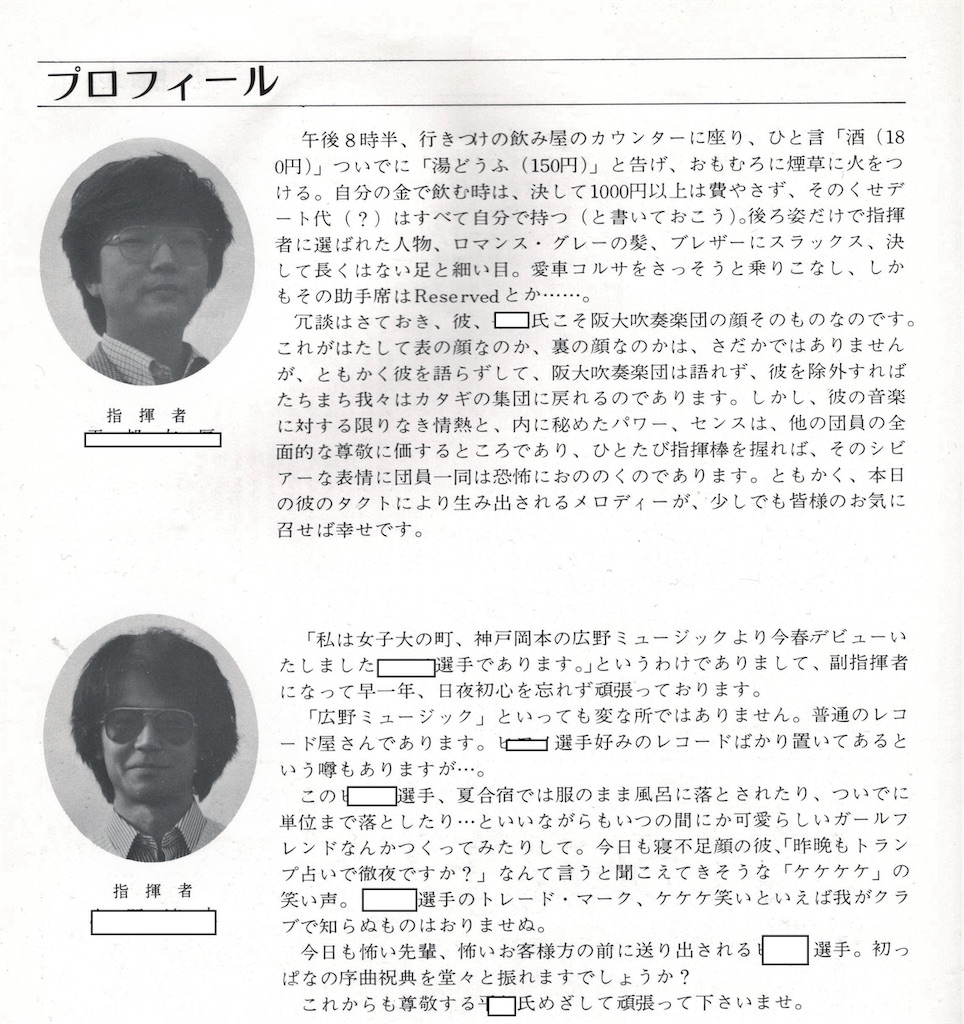 プロフィール
午後８時半、行きつけの飲み屋のカウンターに座り、ひと言「酒（18
0円)」ついでに「湯どうふ（150円)」と告げ、おもむろに煙草に火をつ
ける。自分の金で飲む時は、決して1000円以上は費やさず、そのくせデ
ート代（？）はすべて自分で持つ（と書いておこう)。後ろ姿だけで指揮
者に選ばれた人物、ロマンス・グレーの髪、ブレザーにスラックス、決
して長くはない足と細い目。愛車コルサをさっそうと乗りこなし、しか
もその助手席はReservedとか……。
冗談はさておき、彼、氏こそ阪大吹奏楽団の顔そのものなのです。
これがはたして表の顔なのか、裏の顔なのかは、さだかではありません
が、ともかく彼を語らずして、阪大吹奏楽団は語れず、彼を除外すれば
たちまち我々はカタギの集団に戻れるのであります。しかし、彼の音楽
に対する限りなき情熱と、内に秘めたパワー、センスは、他の団員の全
面的な尊敬に価するところであり、ひとたび指揮棒を握れば、そのシビ
アーな表情に団員一同は恐怖におののくのであります。ともかく、本日
の彼のタクトにより生み出されるメロディーが、少しでも皆様のお気に
召せば幸せです。
指揮者
「私は女子大の町、神戸岡本の広野ミュージックより今春デビューい
たしました選手であります。」というわけでありまして、副指揮者
になって早一年、日夜初心を忘れず頑張っております。
「広野ミュージック」といっても変な所ではありません。普通のレコ
ード屋さんであります。選手好みのレコードばかり置いてあると
いう噂もありますが…。
この選手、夏合宿では服のまま風呂に落とされたり、ついでに
単位まで落としたり…といいながらもいつの間にか可愛らしいガールフ
レンドなんかつくってみたりして。今日も寝不足顔の彼、「昨晩もトラン
プ占いで徹夜ですか？」なんて言うと聞こえてきそうな「ケケケケ」の
笑い声。選手のトレード・マーク、ケケケ笑いといえば我がクラ
ブで知らぬものはおりませぬ。
今日も怖い先輩、怖いお客様方の前に送り出される選手。初っ
ぱなの序曲祝典を堂々と振れますでしょうか？
これからも尊敬する氏めざして頑張って下さいませ。
指揮者